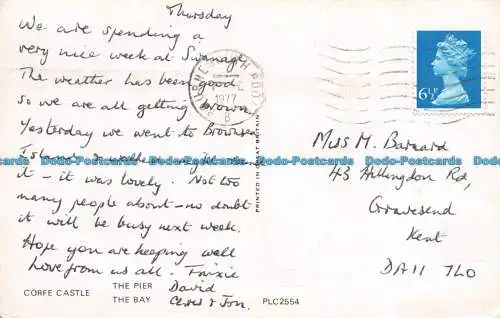 Thursday
We are spending a
very nice week at Swanage.
The weather has been good
so we are all getting brown.
Yesterday we went to Brownsea
Island &
it – it was lovely. Not too
many people about – no doubt
it will be busy next week.
Hope you are keeping well
Love from us all. Trixie
David
& Jon.
CORFE CASTLE THE PIER
THE BAY
PLC2554
PRINTED IN GREAT BRITAIN
BOURNEMOUTH POOLE
1977
6½P
Miss M. Barnard
43 Hillingdon Rd,
Gravesend
Kent
DA11 7LO
Postcards Postcards Postcards Postcards Postcards